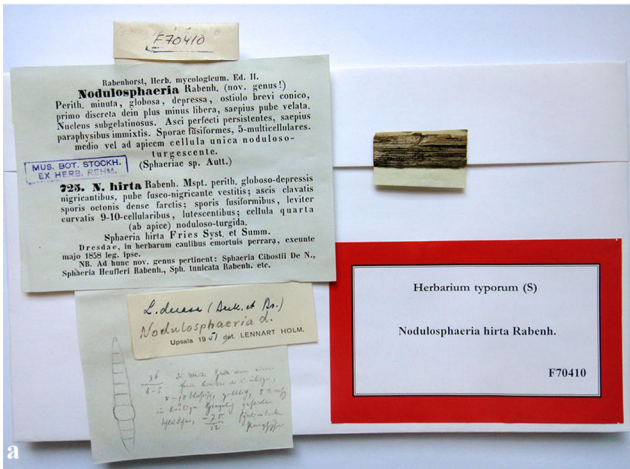 F70410
Rabenhorst, Herb. mycologicum. Ed. II.
Nodulosphaeria Rabenh. (nov. genus!)
Perith. minuta, globosa, depressa, ostiolo brevi conico,
primo discreta dein plus minus libera, saepius pube velata.
Nucleus subgelatinosus. Asci perfecti persistentes, saepius
paraphysibus immixtis. Sporae fusiformes, 5-multicellulares.
medio vel ad apicem cellula unica noduloso-
turgescente.
(Sphaeriae sp. Autt.)
MUS. BOT. STOCKH.
EX HERB. REHM.
725. N. hirta Rabenh. Mspt. perith. globoso-depressis
nigricantibus, pube fusco-nigricante vestitis; ascis clavatis
sporis octonis dense farctis; sporis fusiformibus, leviter
curvatis 9-10-cellularibus, lutescentibus; cellula quarta
(ab apice) noduloso-turgida.
Sphaeria hirta Fries Syst. et Summ.
Dresdae, in herbarum caulibus emortuis perrara, exeunte
majo 1858 leg. ipse.
NB. Ad hunc nov. genus pertinent: Sphaeria Cibostii De N.,
Sphaeria Heufleri Rabenh., Sph. tunicata Rabenh. etc.
L. (Berk. et Br.)
Nodulosphaeria d.
Upsala 19 det. LENNART HOLM.
Herbarium typorum (S)
Nodulosphaeria hirta Rabenh.
F70410
a